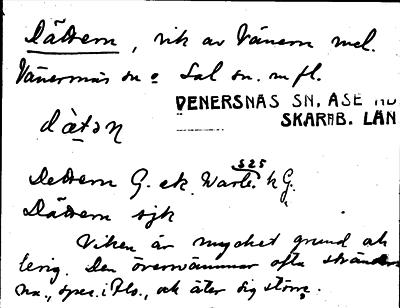 Dättern, vik av Vänern mel.
Vänersnäs sn o Sal sn. m fl.
VENERSNÄS SN, ÅSE HD
SKARAB. LÄN
dȧ̀təɳ
Dettern G. ek. Wartb. h G. 525
Dättern sjk
Viken är mycket grund och
lerig. Den översvämmar ofta stränder
na, spec. i Flo., och äter sig större.